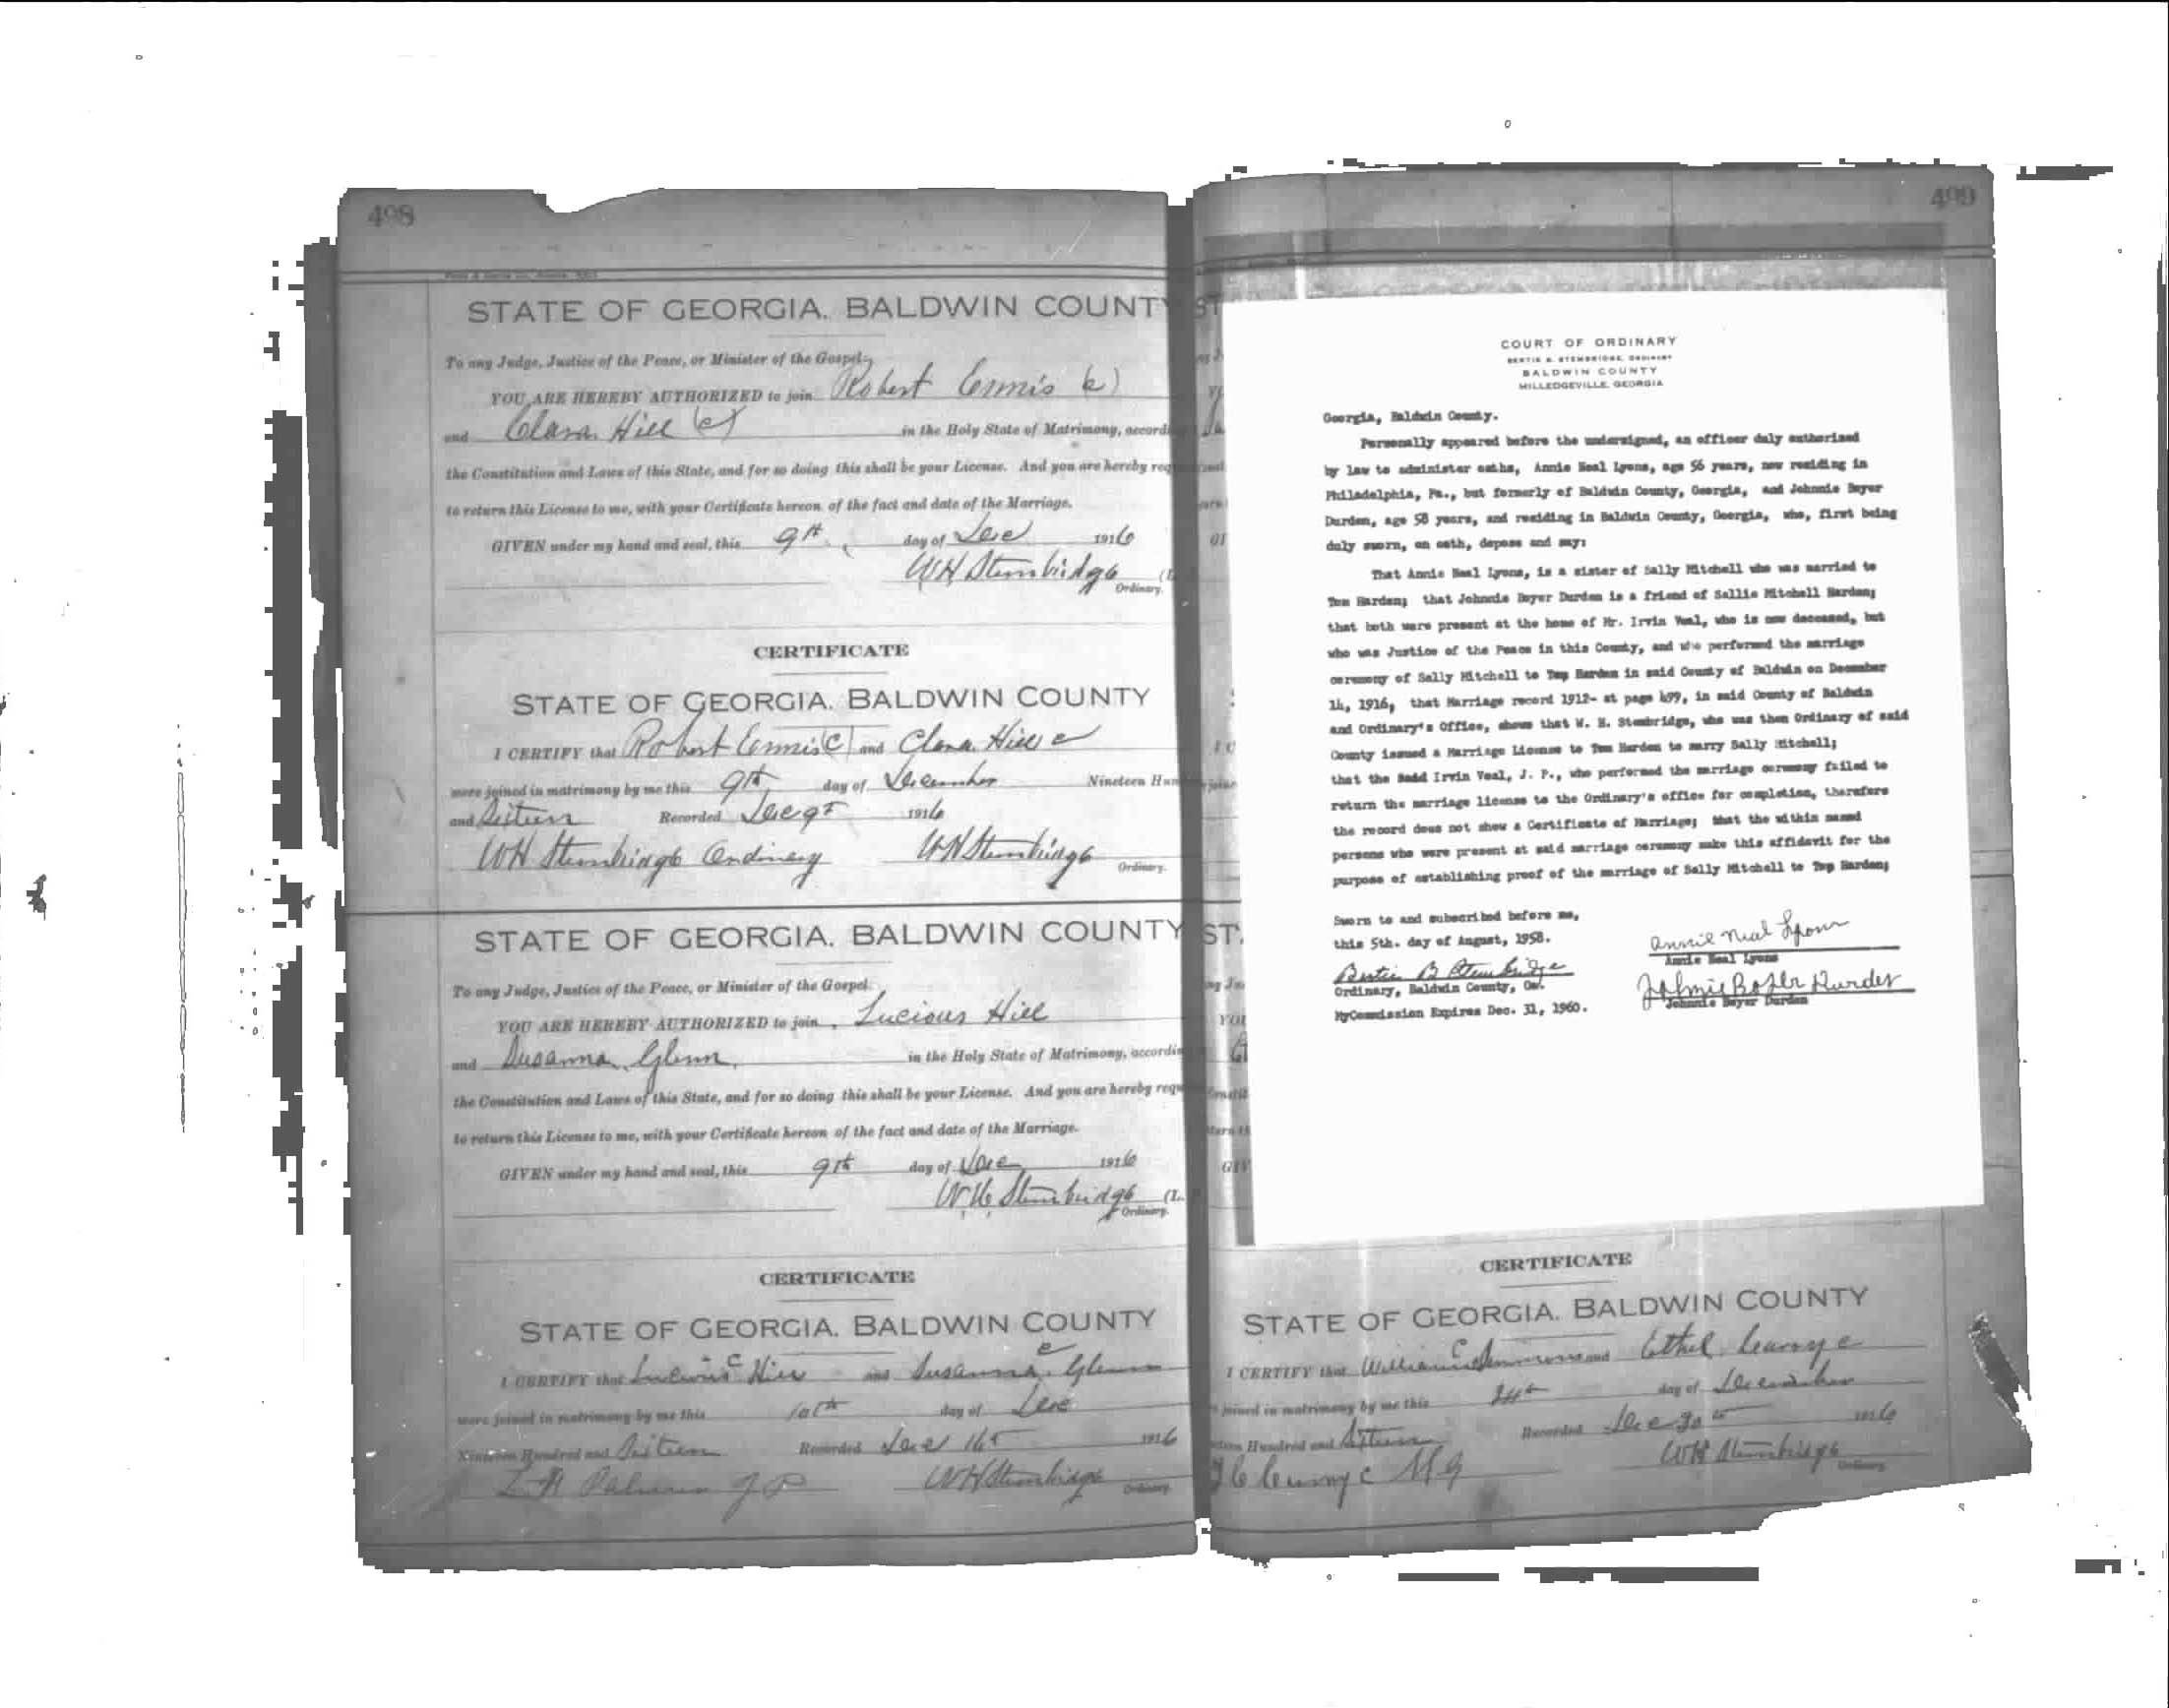 498
STATE OF GEORGIA. BALDWIN COUNTY
To any Judge, Justice of the Peace, or Minister of the Gospel:
YOU ARE HEREBY AUTHORIZED to join Robert Ennis (c)
and Clara Hill (c) in the Holy State of Matrimony, accordi
the Constitution and Laws of this State, and for so doing this shall be your License. And you are hereby req
to return this License to me, with your Certificate hereon of the fact and date of the Marriage.
GIVEN under my hand and seal, this 9th day of Dec 1916
WH Stembridge (L
Ordinary.
CERTIFICATE
STATE OF GEORGIA. BALDWIN COUNTY
I CERTIFY that Robert Ennis (C) and Clara Hill c
were joined in matrimony by me this 9th day of December Nineteen Hun
and Sixteen Recorded Dec 9th 1916
WH Stembridge Ordinary WH Stembridge
Ordinary.
STATE OF GEORGIA. BALDWIN COUNTY
To any Judge, Justice of the Peace, or Minister of the Gospel:
YOU ARE HEREBY AUTHORIZED to join Lucious Hill
and Susanna Glenn in the Holy State of Matrimony, accordin
the Constitution and Laws of this State, and for so doing this shall be your License. And you are hereby requ
to return this License to me, with your Certificate hereon of the fact and date of the Marriage.
GIVEN under my hand and seal, this 9th day of Dec 1916
W H Stembridge (L.
Ordinary.
CERTIFICATE
STATE OF GEORGIA. BALDWIN COUNTY
I CERTIFY that Lucious c Hill and Susanna c Glenn
were joined in matrimony by me this 10th day of Dec
Nineteen Hundred and Sixteen Recorded Dec 16th 1916
J P WH Stembridge
Ordinary.
499
COURT OF ORDINARY
BERTIE B. STEMBRIDGE, ORDINARY
BALDWIN COUNTY
MILLEDGEVILLE, GEORGIA
Georgia, Baldwin County.
Personally appeared before the undersigned, an officer duly authorized
by law to administer oaths, Annie Neal Lyons, age 56 years, now residing in
Philadelphia, Pa., but formerly of Baldwin County, Georgia, and Johnnie Boyer
Durden, age 58 years, and residing in Baldwin County, Georgia, who, first being
duly sworn, on oath, depose and say:
That Annie Neal Lyons, is a sister of Sally Mitchell who was married to
Tom Harden; that Johnnie Boyer Durden is a friend of Sallie Mitchell Harden;
that both were present at the home of Mr. Irvin Veal, who is now deceased, but
who was Justice of the Peace in this County, and who performed the marriage
ceremony of Sally Mitchell to Tom Harden in said County of Baldwin on December
14, 1916, that Marriage record 1912- at page 499, in said County of Baldwin
and Ordinary's Office, shows that W. H. Stembridge, who was then Ordinary of said
County issued a Marriage License to Tom Harden to marry Sally Mitchell;
that the Sadd Irvin Veal, J. P., who performed the marriage ceremony failed to
return the marriage license to the Ordinary's office for completion, therefore
the record does not show a Certificate of Marriage; that the within named
persons who were present at said marriage ceremony make this affidavit for the
purpose of establishing proof of the marriage of Sally Mitchell to Tom Harden;
Sworn to and subscribed before me,
this 5th. day of August, 1958.
Bertie B Stembridge
Ordinary, Baldwin County, Ga.
MyCommission Expires Dec. 31, 1960.
Annie Neal Lyons
Annie Neal Lyons
Johnnie Boyer Durden
Johnnie Boyer Durden
CERTIFICATE
STATE OF GEORGIA. BALDWIN COUNTY
I CERTIFY that William c Simmons and Ethel c
joined in matrimony by me this 24th day of December
Hundred and Sixteen Recorded Dec 30th 1916
M G WH Stembridge
Ordinary.